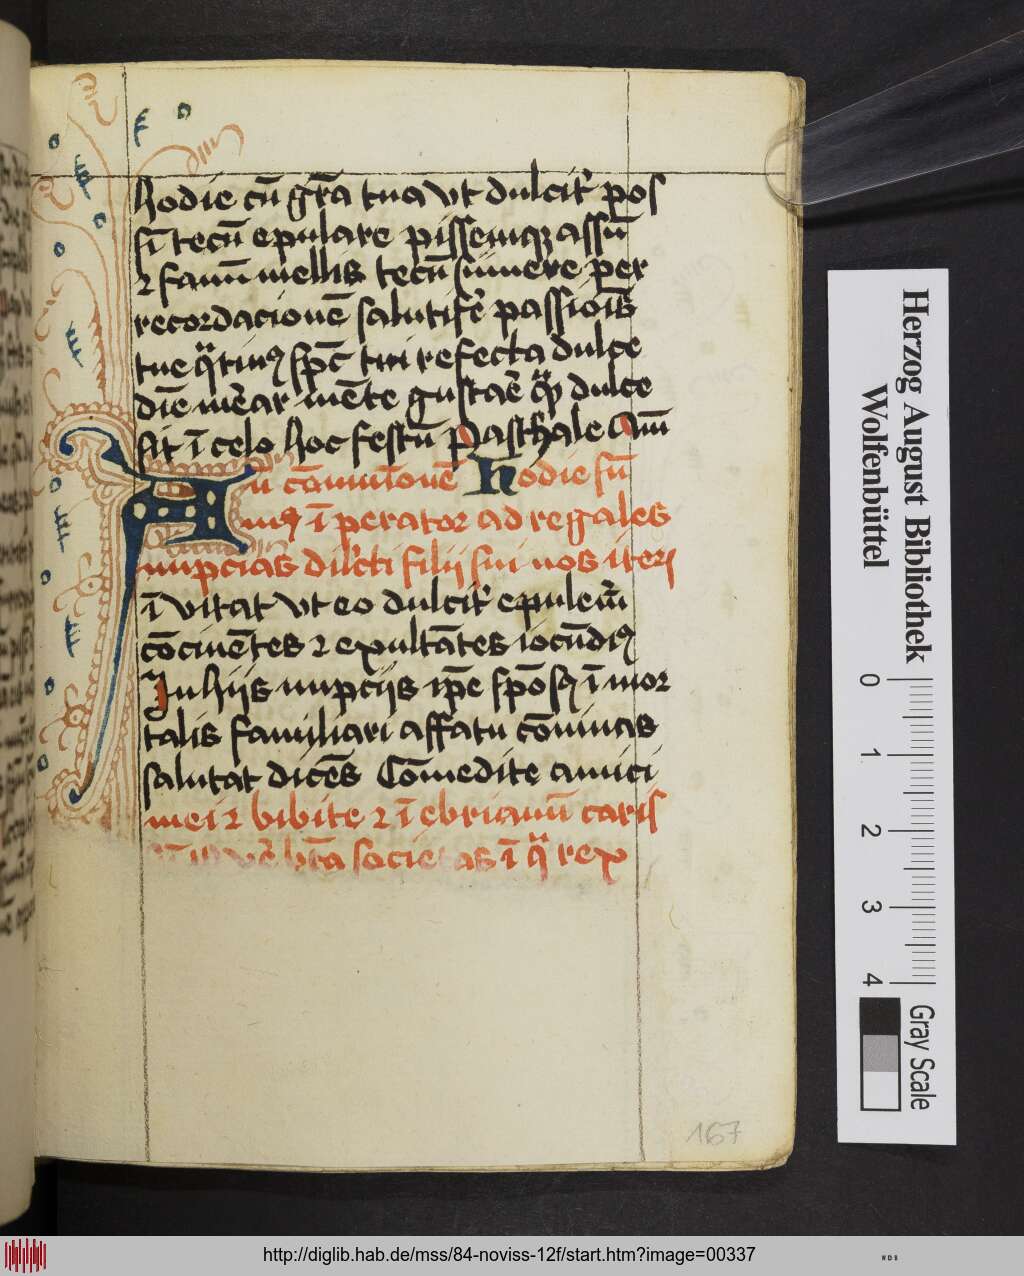 hodie cū gr̄a tua vt dulcit᷑ pos
sī tecū epulare pissemꝙ assū
⁊ fauū mellis tecū sumere per
recordacionē salutifē passiōis
tue q̈tinꝰ spc̄ tui refecta dulce
dīe mēar mēte gustaē q̈ꝫ dulce
sit ī celo hoc festū Paschale Am̄
Aū cōmuīonē Hodie sū
mꝰ īperator ad regales
nupcias dilc̄ti filij sui nos iteꝝ
ī vitat vt eo dulcit᷑ epulem̄
cōcinētes ⁊ exultātes iocūdiꝰ
In hijs nupcijs ip̄e spōsꝰ īmor
talis familiari affatu cōuiuas
salutat dicēs Cōmedite amici
mei ⁊ bibite ⁊ īebriamī caris
vē btā societas ī q̈ rex
167
Herzog August Bibliothek
Wolfenbüttel
0 1 2 3 4
Gray Scale
http://diglib.hab.de/mss/84-noviss-12f/start.htm?image=00337